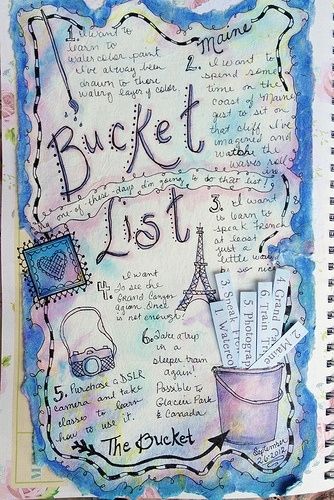 1. I want to
learn to
water color paint
I've always been
drawn to those
watery layers of color.
Maine
2. I want to
spend some
time on the
coast of Maine
just to sit on
that cliff I've
imagined and
watch the
waves roll
in
Bucket
one of these days I'm going to do that list!
List
3. I want
to learn to
speak French
at least
just a
little way
so nice
4. I want
to see the
Grand Canyon
again. Once
is not enough!
6. Take a trip
in
sleeper train
again!
Possible to
Glacier Park
& Canada
5. Purchase a DSLR
camera and take
classes to learn
how to use it.
1. Waterco
3. Speak Fre
5 Photograp
6. Train
4 Grand C
2 Maine
The Bucket
September
2012